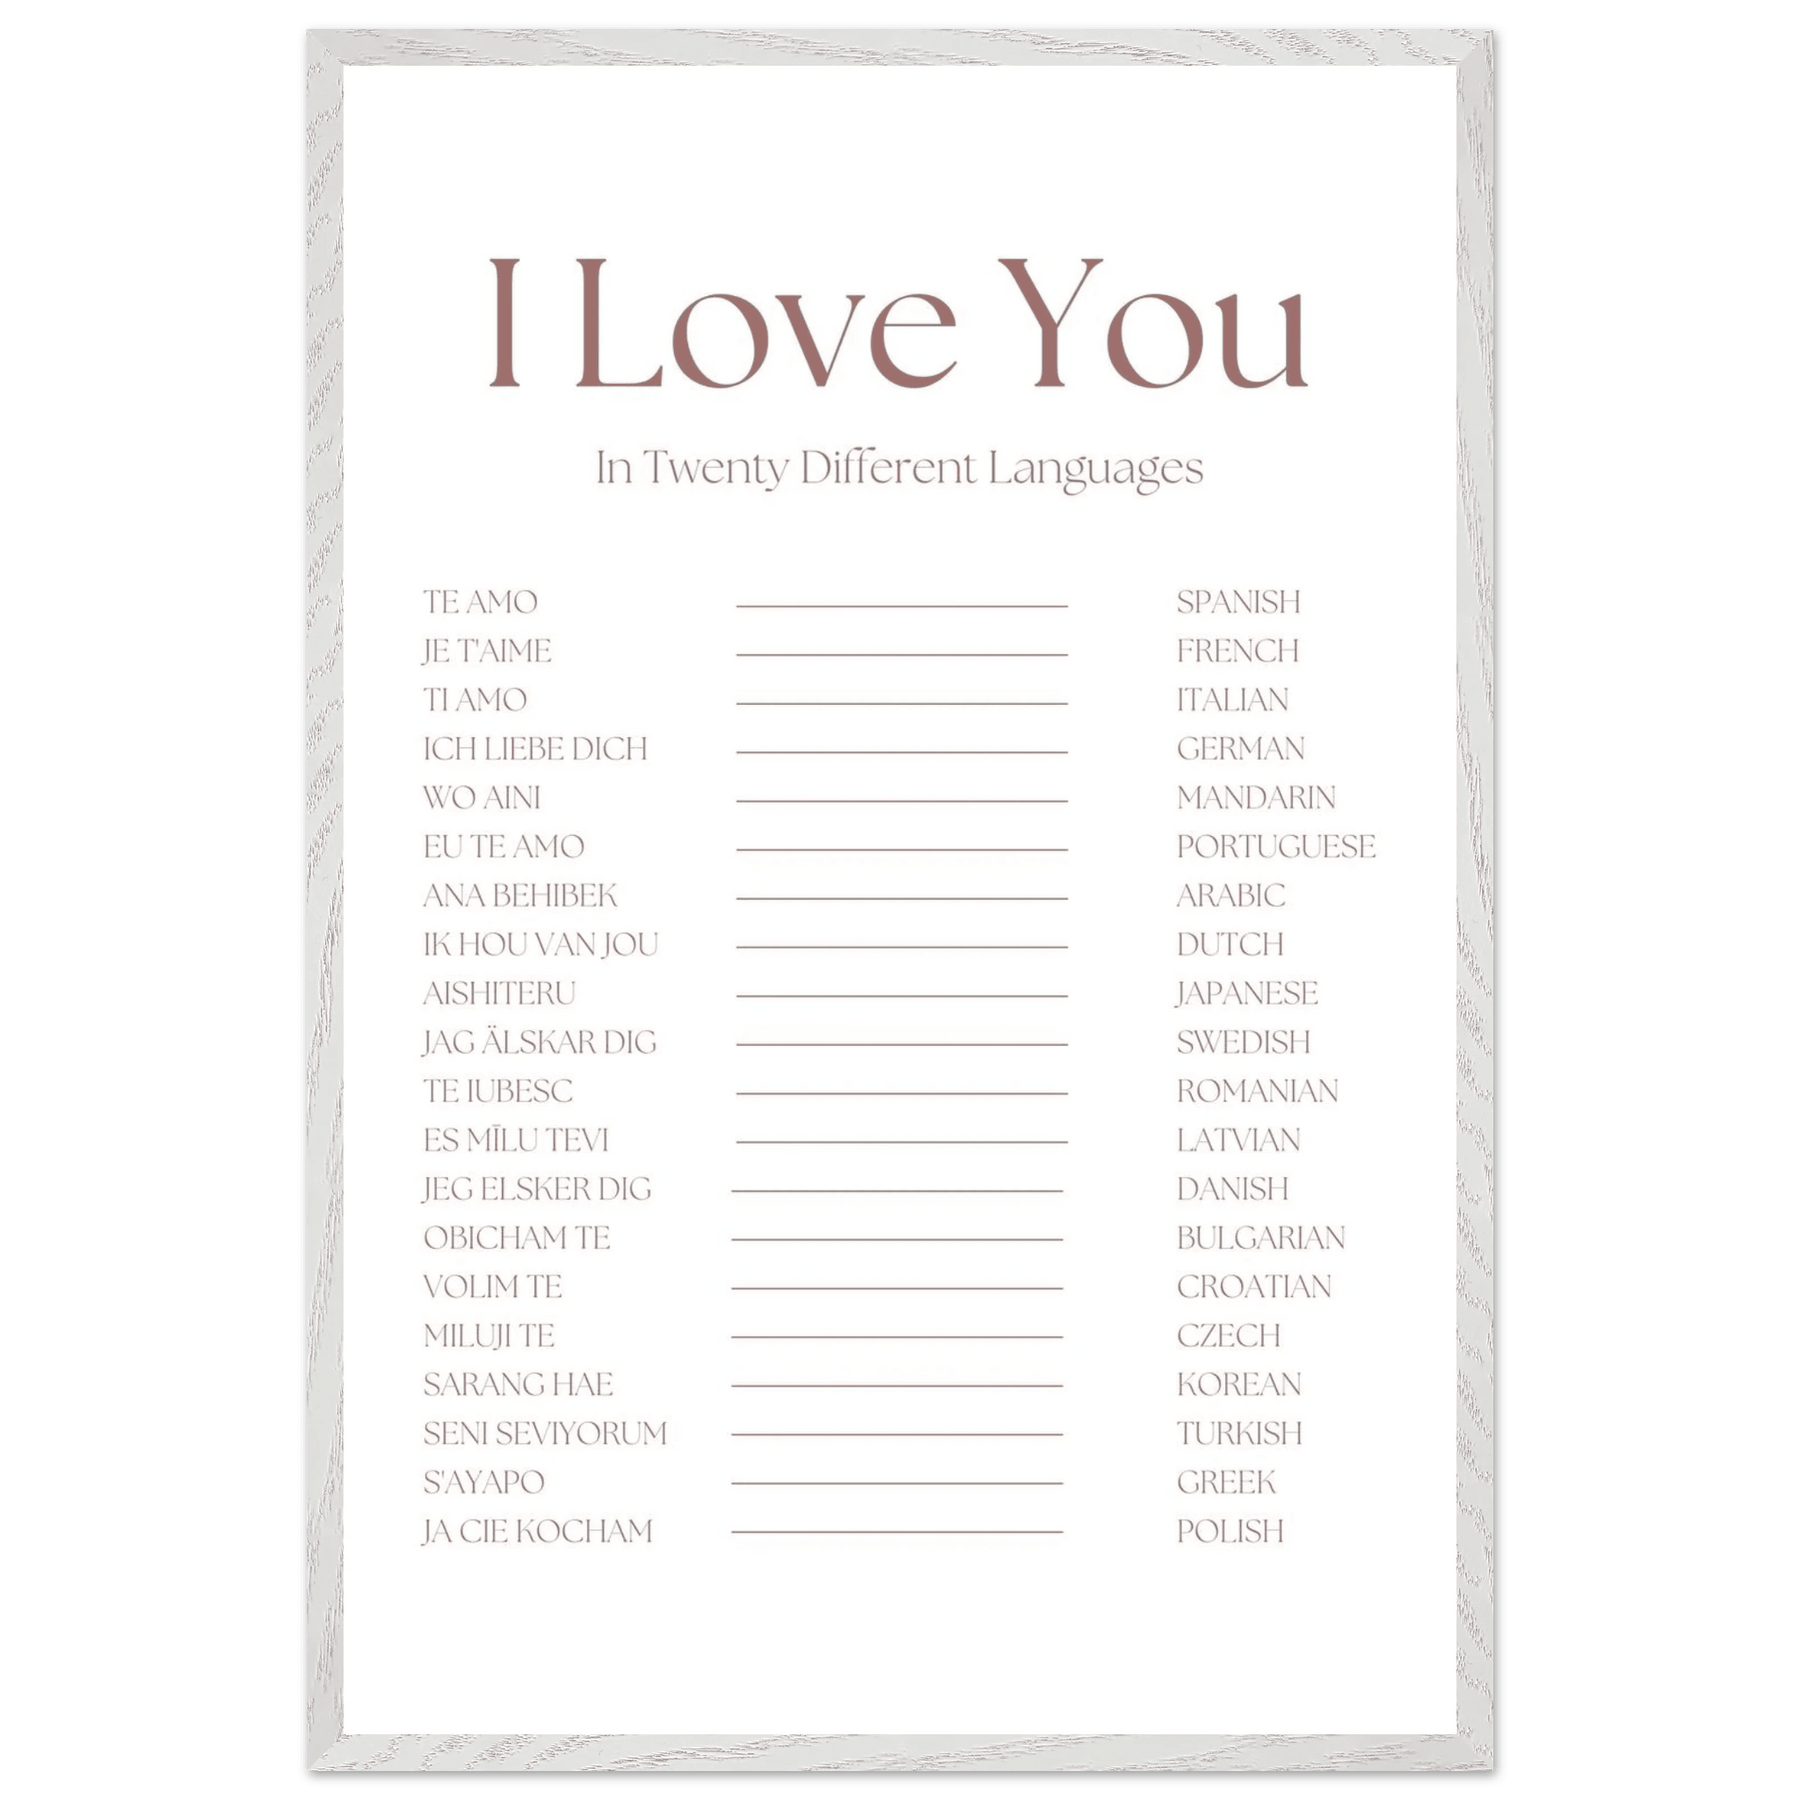 I Love You
In Twenty Different Languages
TE AMO SPANISH
JE T'AIME FRENCH
TI AMO ITALIAN
ICH LIEBE DICH GERMAN
WO AINI MANDARIN
EU TE AMO PORTUGUESE
ANA BEHIBEK ARABIC
IK HOU VAN JOU DUTCH
AISHITERU JAPANESE
JAG ÄLSKAR DIG SWEDISH
TE IUBESC ROMANIAN
ES MĪLU TEVI LATVIAN
JEG ELSKER DIG DANISH
OBICHAM TE BULGARIAN
VOLIM TE CROATIAN
MILUJI TE CZECH
SARANG HAE KOREAN
SENI SEVIYORUM TURKISH
S'AYAPO GREEK
JA CIE KOCHAM POLISH